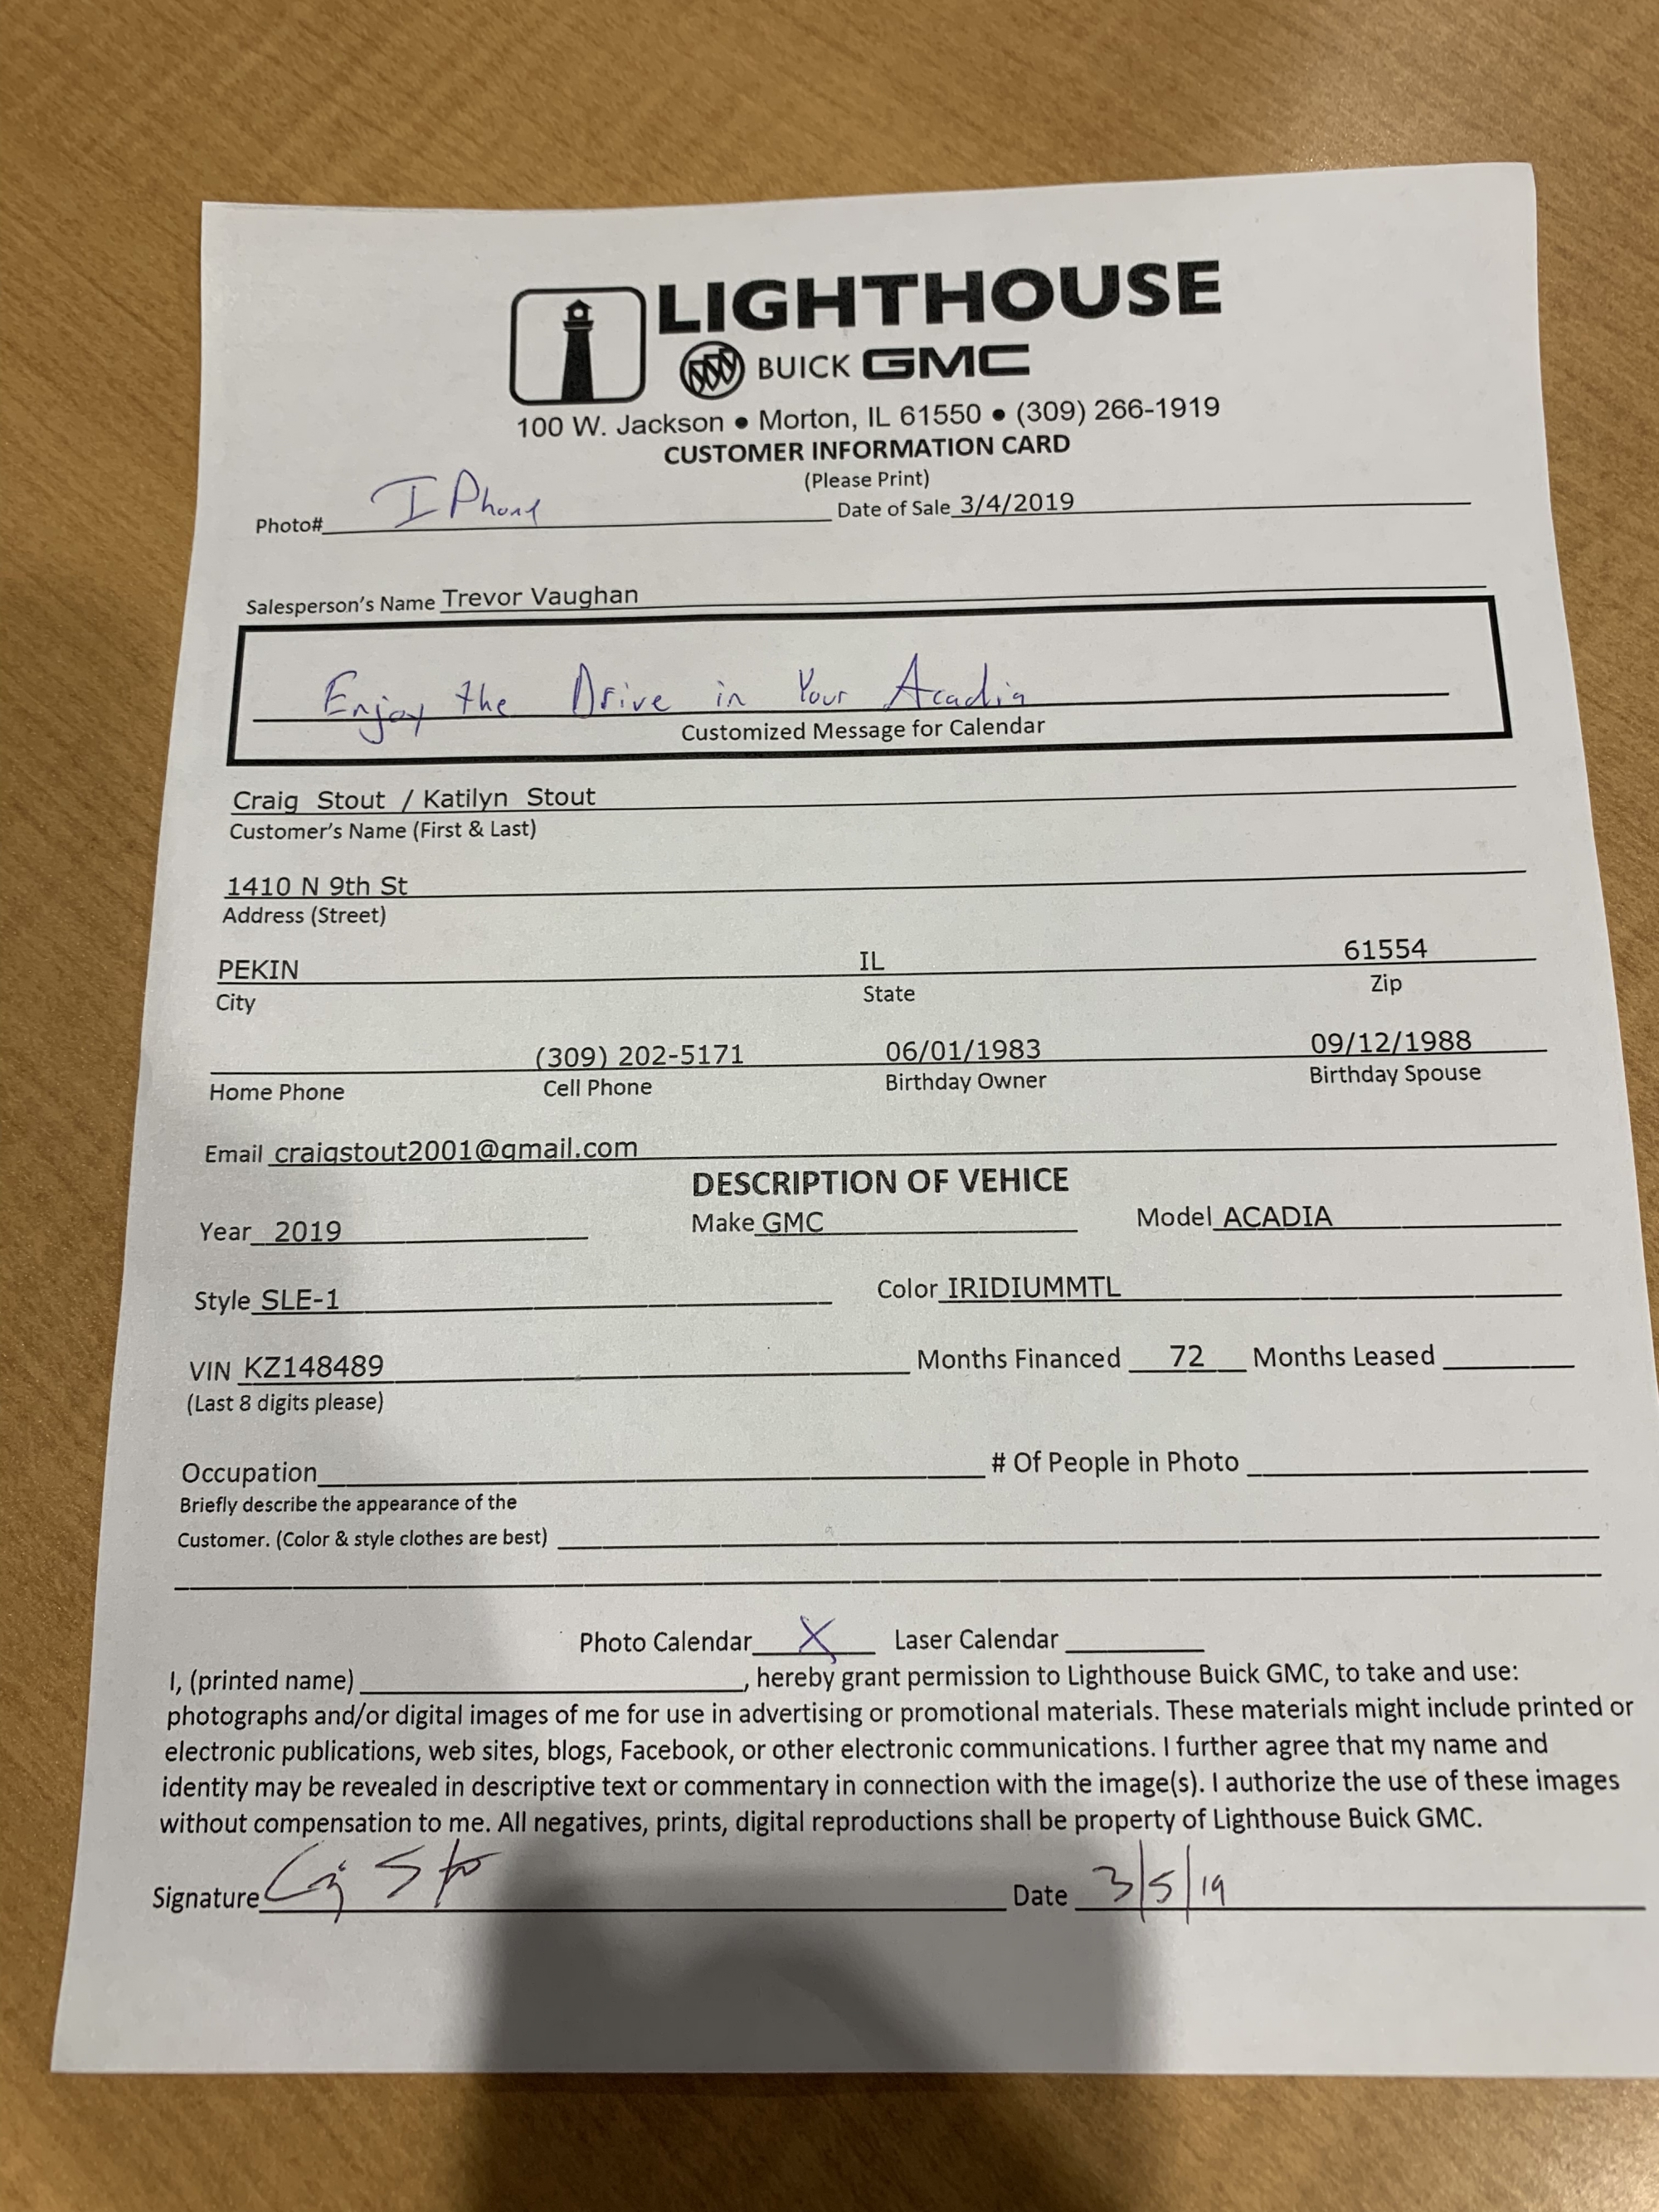 LIGHTHOUSE
BUICK GMC
100 W. Jackson • Morton, IL 61550 • (309) 266-1919
CUSTOMER INFORMATION CARD
(Please Print)
Photo# I Phone Date of Sale 3/4/2019
Salesperson's Name Trevor Vaughan
Enjoy the Drive in Your Acadia
Customized Message for Calendar
Craig Stout / Katilyn Stout
Customer's Name (First & Last)
1410 N 9th St
Address (Street)
PEKIN IL 61554
City State Zip
(309) 202-5171 06/01/1983 09/12/1988
Home Phone Cell Phone Birthday Owner Birthday Spouse
Email craigstout2001@gmail.com
DESCRIPTION OF VEHICE
Year 2019 Make GMC Model ACADIA
Style SLE-1 Color IRIDIUMMTL
VIN KZ148489 Months Financed 72 Months Leased
(Last 8 digits please)
Occupation # Of People in Photo
Briefly describe the appearance of the
Customer. (Color & style clothes are best)
Photo Calendar X Laser Calendar
I, (printed name) , hereby grant permission to Lighthouse Buick GMC, to take and use:
photographs and/or digital images of me for use in advertising or promotional materials. These materials might include printed or
electronic publications, web sites, blogs, Facebook, or other electronic communications. I further agree that my name and
identity may be revealed in descriptive text or commentary in connection with the image(s). I authorize the use of these images
without compensation to me. All negatives, prints, digital reproductions shall be property of Lighthouse Buick GMC.
Signature Date 3/5/19